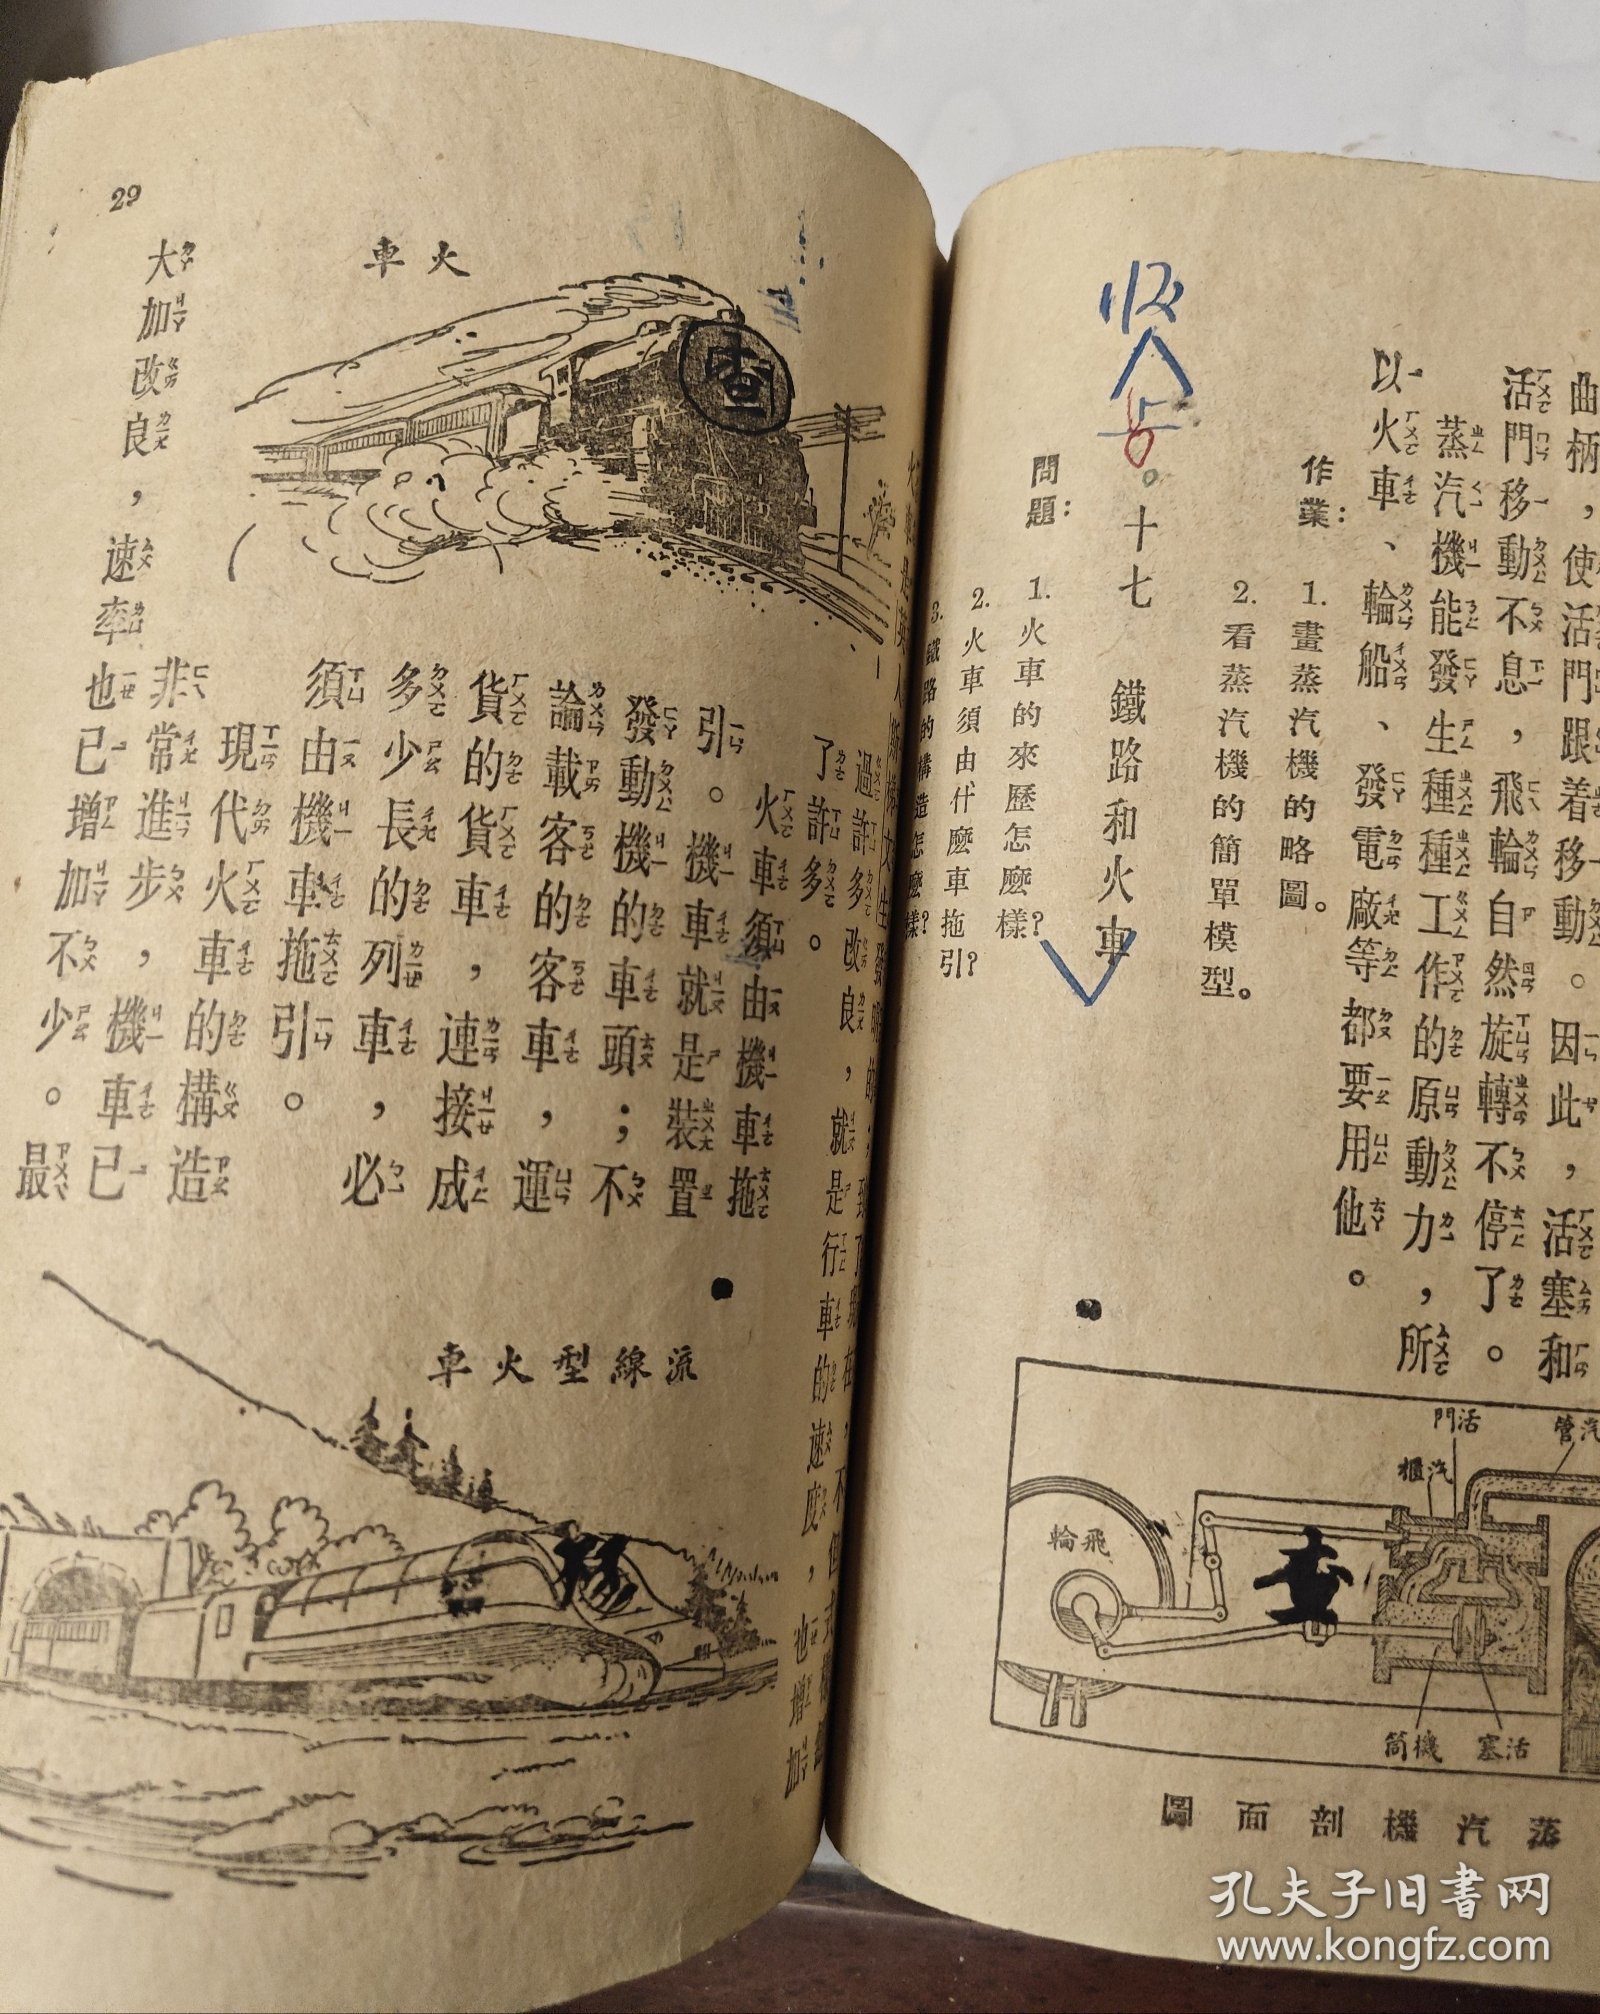 曲柄，使活門跟着移動。因此，活塞和
活門移動不息，飛輪自然旋轉不停了。
蒸汽機能發生種種工作的原動力，所
以火車、輪船、發電廠等都要用他。
作業：
1. 畫蒸汽機的略圖。
2. 看蒸汽機的簡單模型。
十七 鐵路和火車
問題：
1. 火車的來歷怎麼樣？
2. 火車須由什麼車拖引？
3. 鐵路的構造怎麼樣？
門活
櫃汽
管汽
輪飛
查
筒機
塞活
圖面剖機汽蒸
過許多改良，就是行車的速度，也增加
了許多。
火車須由機車拖
引。機車就是裝置
發動機的車頭；不
論載客的客車，運
貨的貨車，連接成
多少長的列車，必
須由機車拖引。
現代火車的構造
非常進步，機車已
大加改良，速率也已增加不少。最
車火
查
車火型線流
29
孔夫子旧書网
www.kongfz.com